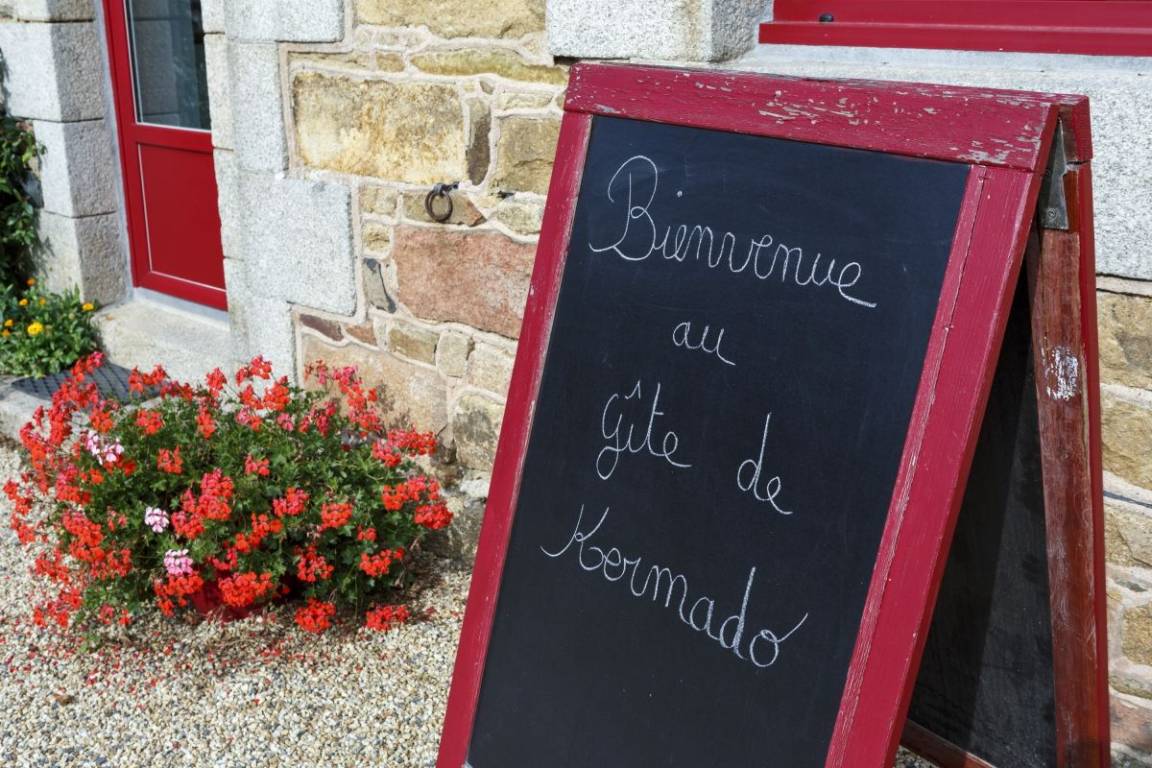 Bienvenue
au
gîte de
Kermado